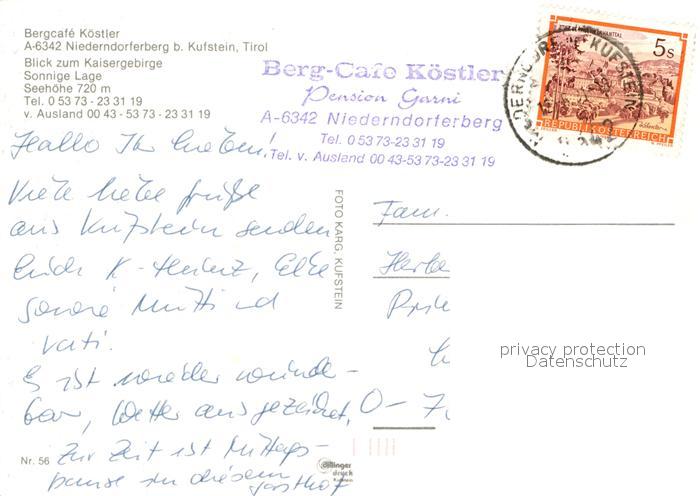 Bergcafé Köstler
A-6342 Niederndorferberg b. Kufstein, Tirol
Blick zum Kaisergebirge
Sonnige Lage
Seehöhe 720 m
Tel. 0 53 73 - 23 31 19
v. Ausland 00 43 - 53 73 - 23 31 19
Berg-Cafe Köstler
Pension Garni
A-6342 Niederndorferberg
Tel. 0 53 73-23 31 19
Tel. v. Ausland 00 43-53 73-23 31 19
5s
REPUBLIK ÖSTERREICH
KUFSTEIN
Hallo Ihr Lieben!
Viele liebe Grüße
aus Kufstein senden
Euch K-Heinz, Elke
sowie Mutti und
Vati.
Es ist wieder wunder-
bar, Wetter ausgezeichnet,
Zur Zeit ist Mittags-
pause in diesem Gasthof
FOTO KARG, KUFSTEIN
Fam.
O-7
privacy protection
Datenschutz
Nr. 56
druck